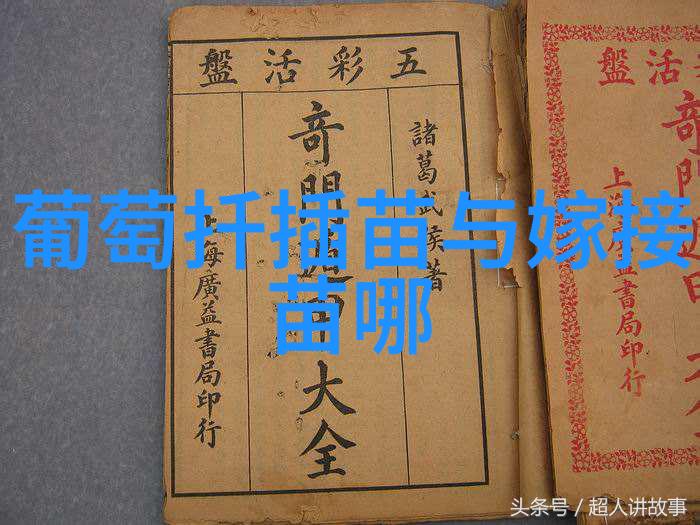 葡萄扦插苗与嫁接
苗哪
五彩活盤
諸葛武侯著
竒門遁甲大全
上海廣益書局印行
活盤
竒門遁甲
上海廣益書局印行
头条号 / 超人讲故事